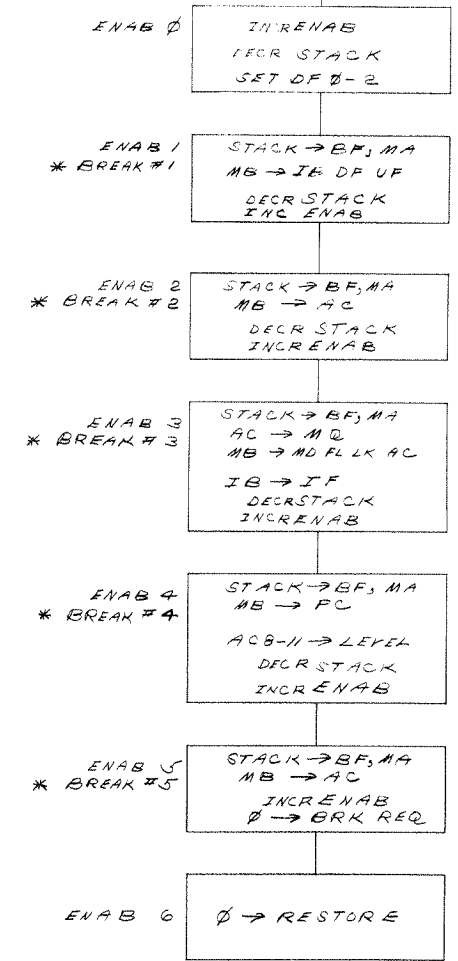 ENAB Ø
INCRENAB
DECR STACK
SET DF Ø-2
ENAB 1
* BREAK #1
STACK → BF, MA
MB → IB DF UF
DECR STACK
INC ENAB
ENAB 2
* BREAK #2
STACK → BF, MA
MB → AC
DECR STACK
INCRENAB
ENAB 3
* BREAK #3
STACK → BF, MA
AC → MQ
MB → MD FL LK AC
IB → IF
DECRSTACK
INCRENAB
ENAB 4
* BREAK #4
STACK → BF, MA
MB → PC
AC8-11 → LEVEL
DECR STACK
INCR ENAB
ENAB 5
* BREAK #5
STACK → BF, MA
MB → AC
INCRENAB
Ø → BRK REQ
ENAB 6
Ø → RESTORE